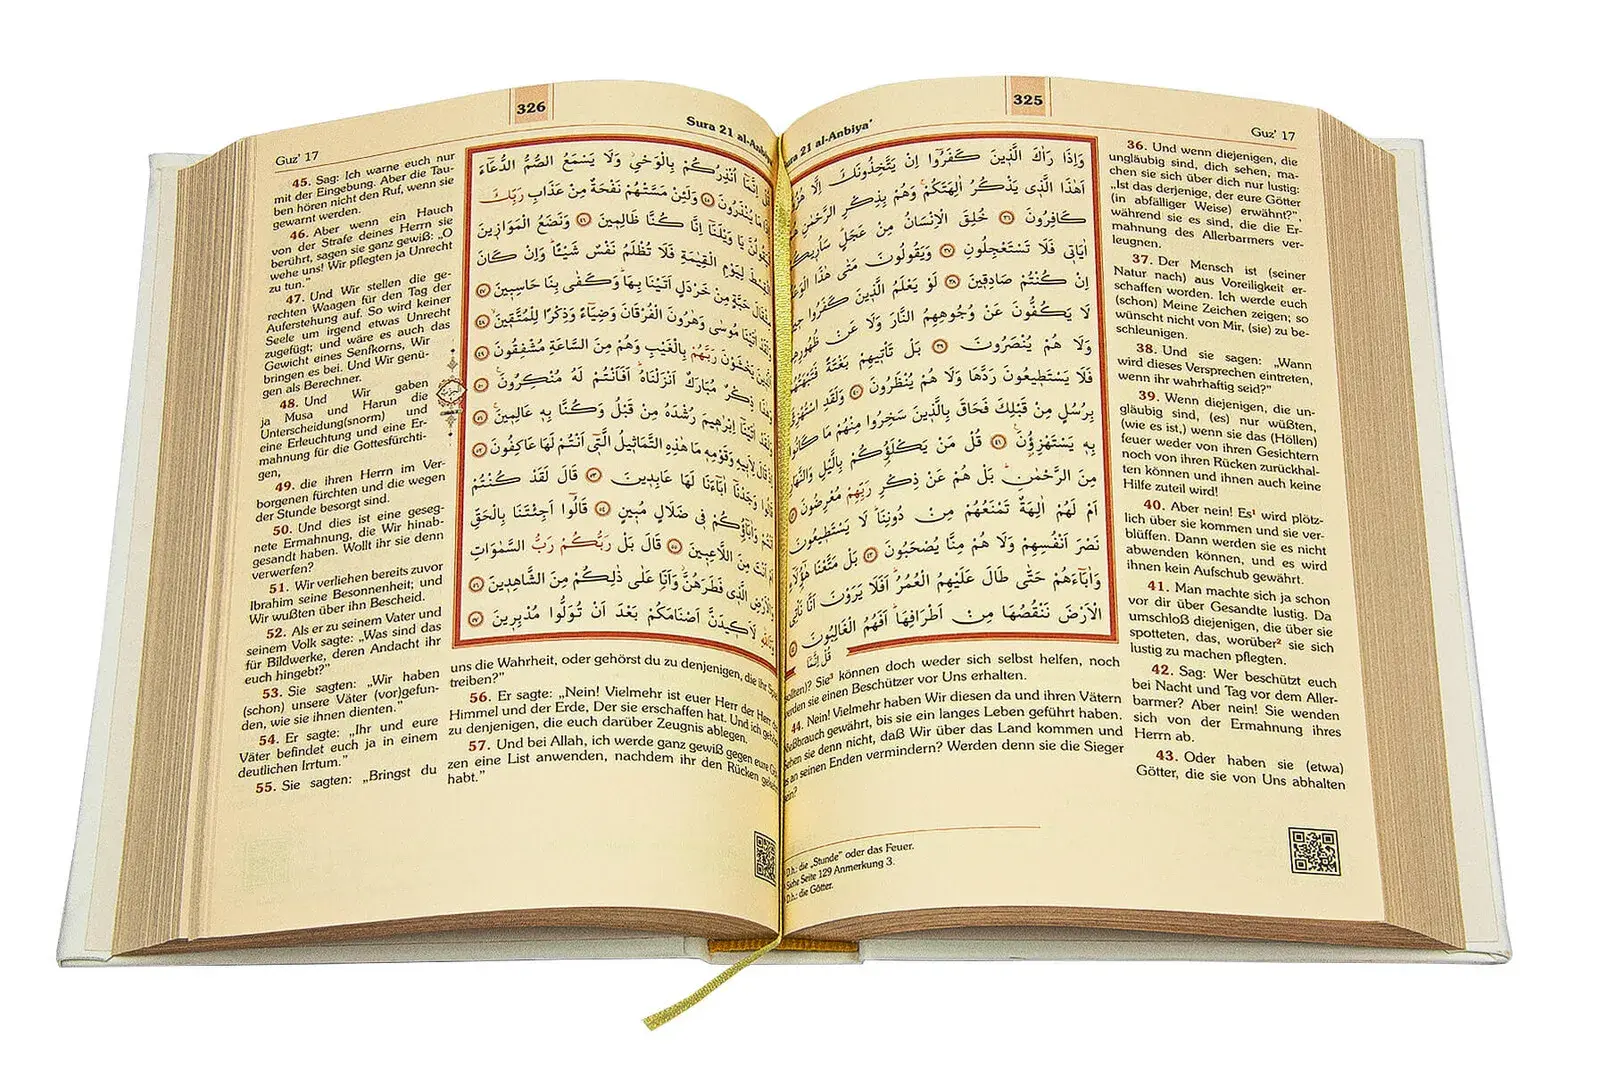 325
Guz' 17
Sura 21 al-Anbiya'
36. Und wenn diejenigen, die
ungläubig sind, dich sehen, ma-
chen sie sich über dich nur lustig:
„Ist das derjenige, der eure Götter
(in abfälliger Weise) erwähnt?",
während sie es sind, die die Er-
mahnung des Allerbarmers ver-
leugnen.
37. Der Mensch ist (seiner
Natur nach) aus Voreiligkeit er-
schaffen worden. Ich werde euch
(schon) Meine Zeichen zeigen; so
wünscht nicht von Mir, (sie) zu be-
schleunigen.
38. Und sie sagen: „Wann
wird dieses Versprechen eintreten,
wenn ihr wahrhaftig seid?"
39. Wenn diejenigen, die un-
gläubig sind, (es) nur wüßten,
(wie es ist,) wenn sie das (Höllen)
feuer weder von ihren Gesichtern
noch von ihren Rücken zurückhal-
ten können und ihnen auch keine
Hilfe zuteil wird!
40. Aber nein! Es¹ wird plötz-
lich über sie kommen und sie ver-
blüffen. Dann werden sie es nicht
abwenden können, und es wird
ihnen kein Aufschub gewährt.
41. Man machte sich ja schon
vor dir über Gesandte lustig. Da
umschloß diejenigen, die über sie
spotteten, das, worüber² sie sich
lustig zu machen pflegten.
42. Sag: Wer beschützt euch
bei Nacht und Tag vor dem Aller-
barmer? Aber nein! Sie wenden
sich von der Ermahnung ihres
Herrn ab.
43. Oder haben sie (etwa)
Götter, die sie von Uns abhalten
وَاِذَا رَاٰكَ الَّذٖينَ كَفَرُٓوا اِنْ يَتَّخِذُونَكَ اِلَّا
اَهٰذَا الَّذٖي يَذْكُرُ اٰلِهَتَكُمْۚ وَهُمْ بِذِكْرِ الرَّحْمٰنِ
كَافِرُونَ ﴿٣٦﴾ خُلِقَ الْاِنْسَانُ مِنْ عَجَلٍۜ سَاُرٖيكُمْ
اٰيَاتٖي فَلَا تَسْتَعْجِلُونِ ﴿٣٧﴾ وَيَقُولُونَ مَتٰى هٰذَا الْوَعْدُ
اِنْ كُنْتُمْ صَادِقٖينَ ﴿٣٨﴾ لَوْ يَعْلَمُ الَّذٖينَ كَفَرُوا حٖينَ
لَا يَكُفُّونَ عَنْ وُجُوهِهِمُ النَّارَ وَلَا عَنْ ظُهُورِهِمْ
وَلَا هُمْ يُنْصَرُونَ ﴿٣٩﴾ بَلْ تَأْتٖيهِمْ بَغْتَةً فَتَبْهَتُهُمْ
فَلَا يَسْتَطٖيعُونَ رَدَّهَا وَلَا هُمْ يُنْظَرُونَ ﴿٤٠﴾ وَلَقَدِ اسْتُهْزِئَ
بِرُسُلٍ مِنْ قَبْلِكَ فَحَاقَ بِالَّذٖينَ سَخِرُوا مِنْهُمْ مَا كَانُوا
بِهٖ يَسْتَهْزِؤُ۫نَ ﴿٤١﴾ قُلْ مَنْ يَكْلَؤُ۬كُمْ بِالَّيْلِ وَالنَّهَارِ
مِنَ الرَّحْمٰنِۜ بَلْ هُمْ عَنْ ذِكْرِ رَبِّهِمْ مُعْرِضُونَ ﴿٤٢﴾
اَمْ لَهُمْ اٰلِهَةٌ تَمْنَعُهُمْ مِنْ دُونِنَاۜ لَا يَسْتَطٖيعُونَ
نَصْرَ اَنْفُسِهِمْ وَلَا هُمْ مِنَّا يُصْحَبُونَ ﴿٤٣﴾ بَلْ مَتَّعْنَا هٰٓؤُ۬لَٓاءِ
وَاٰبَٓاءَهُمْ حَتّٰى طَالَ عَلَيْهِمُ الْعُمُرُۜ اَفَلَا يَرَوْنَ اَنَّا نَأْتِي
الْاَرْضَ نَنْقُصُهَا مِنْ اَطْرَافِهَاۜ اَفَهُمُ الْغَالِبُونَ
قُلْ اِنَّمَٓا
sollten)? Sie³ können doch weder sich selbst helfen, noch
werden sie einen Beschützer vor Uns erhalten.
44. Nein! Vielmehr haben Wir diesen da und ihren Vätern
Nießbrauch gewährt, bis sie ein langes Leben geführt haben.
Sehen sie denn nicht, daß Wir über das Land kommen und
es an seinen Enden vermindern? Werden denn sie die Sieger
sein?
D.h.: die „Stunde" oder das Feuer.
Siehe Seite 129 Anmerkung 3.
D.h.: die Götter.
326
Guz' 17
Sura 21 al-Anbiya'
قُلْ اِنَّمَٓا اُنْذِرُكُمْ بِالْوَحْيِۘ وَلَا يَسْمَعُ الصُّمُّ الدُّعَٓاءَ
اِذَا مَا يُنْذَرُونَ ﴿٤٥﴾ وَلَئِنْ مَسَّتْهُمْ نَفْحَةٌ مِنْ عَذَابِ رَبِّكَ
لَيَقُولُنَّ يَا وَيْلَنَٓا اِنَّا كُنَّا ظَالِمٖينَ ﴿٤٦﴾ وَنَضَعُ الْمَوَازٖينَ
الْقِسْطَ لِيَوْمِ الْقِيٰمَةِ فَلَا تُظْلَمُ نَفْسٌ شَيْـًٔاۜ وَاِنْ كَانَ
مِثْقَالَ حَبَّةٍ مِنْ خَرْدَلٍ اَتَيْنَا بِهَاۜ وَكَفٰى بِنَا حَاسِبٖينَ ﴿٤٧﴾
وَلَقَدْ اٰتَيْنَا مُوسٰى وَهٰرُونَ الْفُرْقَانَ وَضِيَٓاءً وَذِكْرًا لِلْمُتَّقٖينَۙ ﴿٤٨﴾
اَلَّذٖينَ يَخْشَوْنَ رَبَّهُمْ بِالْغَيْبِ وَهُمْ مِنَ السَّاعَةِ مُشْفِقُونَ ﴿٤٩﴾
وَهٰذَا ذِكْرٌ مُبَارَكٌ اَنْزَلْنَاهُۜ اَفَاَنْتُمْ لَهُ مُنْكِرُونَ ﴿٥٠﴾
وَلَقَدْ اٰتَيْنَٓا اِبْرٰهٖيمَ رُشْدَهُ مِنْ قَبْلُ وَكُنَّا بِهٖ عَالِمٖينَۚ ﴿٥١﴾
اِذْ قَالَ لِاَبٖيهِ وَقَوْمِهٖ مَا هٰذِهِ التَّمَاثٖيلُ الَّتٖٓي اَنْتُمْ لَهَا عَاكِفُونَ ﴿٥٢﴾
قَالُوا وَجَدْنَٓا اٰبَٓاءَنَا لَهَا عَابِدٖينَ ﴿٥٣﴾ قَالَ لَقَدْ كُنْتُمْ
اَنْتُمْ وَاٰبَٓاؤُ۬كُمْ فٖي ضَلَالٍ مُبٖينٍ ﴿٥٤﴾ قَالُٓوا اَجِئْتَنَا بِالْحَقِّ
اَمْ اَنْتَ مِنَ اللَّاعِبٖينَ ﴿٥٥﴾ قَالَ بَلْ رَبُّكُمْ رَبُّ السَّمٰوَاتِ
وَالْاَرْضِ الَّذٖي فَطَرَهُنَّۘ وَاَنَا۬ عَلٰى ذٰلِكُمْ مِنَ الشَّاهِدٖينَ ﴿٥٦﴾
وَتَاللّٰهِ لَاَكٖيدَنَّ اَصْنَامَكُمْ بَعْدَ اَنْ تُوَلُّوا مُدْبِرٖينَ ﴿٥٧﴾
45. Sag: Ich warne euch nur
mit der Eingebung. Aber die Tau-
ben hören nicht den Ruf, wenn sie
gewarnt werden.
46. Aber wenn ein Hauch
von der Strafe deines Herrn sie
berührt, sagen sie ganz gewiß: „O
wehe uns! Wir pflegten ja Unrecht
zu tun."
47. Und Wir stellen die ge-
rechten Waagen für den Tag der
Auferstehung auf. So wird keiner
Seele um irgend etwas Unrecht
zugefügt; und wäre es auch das
Gewicht eines Senfkorns, Wir
bringen es bei. Und Wir genü-
gen als Berechner.
48. Und Wir gaben
ja Musa und Harun die
Unterscheidung(snorm) und
eine Erleuchtung und eine Er-
mahnung für die Gottesfürchti-
gen,
49. die ihren Herrn im Ver-
borgenen fürchten und die wegen
der Stunde besorgt sind.
50. Und dies ist eine geseg-
nete Ermahnung, die Wir hinab-
gesandt haben. Wollt ihr sie denn
verwerfen?
51. Wir verliehen bereits zuvor
Ibrahim seine Besonnenheit; und
Wir wußten über ihn Bescheid.
52. Als er zu seinem Vater und
seinem Volk sagte: „Was sind das
für Bildwerke, deren Andacht ihr
euch hingebt?"
53. Sie sagten: „Wir haben
(schon) unsere Väter (vor)gefun-
den, wie sie ihnen dienten."
54. Er sagte: „Ihr und eure
Väter befindet euch ja in einem
deutlichen Irrtum."
55. Sie sagten: „Bringst du
uns die Wahrheit, oder gehörst du zu denjenigen, die ihr
treiben?"
56. Er sagte: „Nein! Vielmehr ist euer Herr der Herr der
Himmel und der Erde, Der sie erschaffen hat. Und ich
zu denjenigen, die euch darüber Zeugnis ablegen.
57. Und bei Allah, ich werde ganz gewiß gegen eure
zen eine List anwenden, nachdem ihr den Rücken
habt."